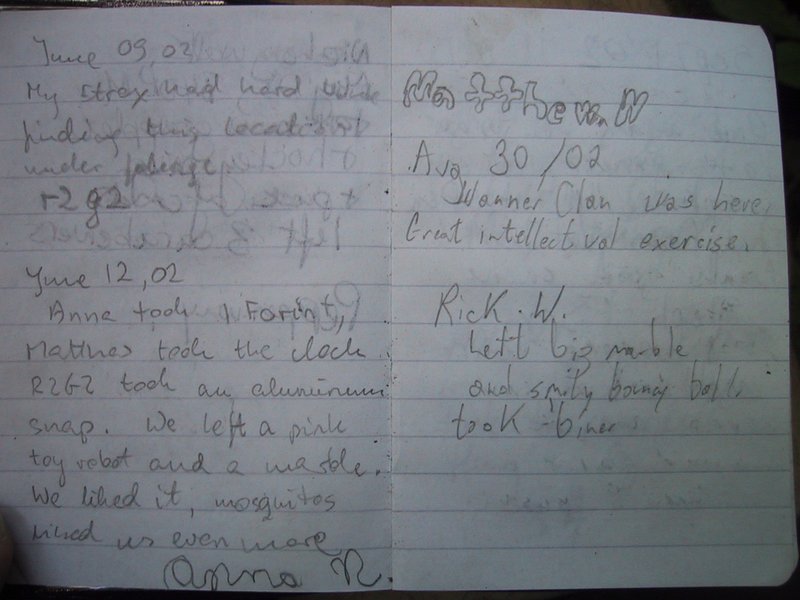 June 09, 02
My strex had hard time
finding this location
under foliage
r2g2
June 12, 02
Anna took 1 Forint,
Matthes took the clock.
R2G2 took an aluminum
snap. We left a pink
toy robot and a marble.
We liked it, mosquitos
liked us even more
Anna R.
Aug 30/02
Wanner Clan was here.
Great intellectual exercise.
Rick. W.
Left big marble
and smily bouncy ball.
took -biner